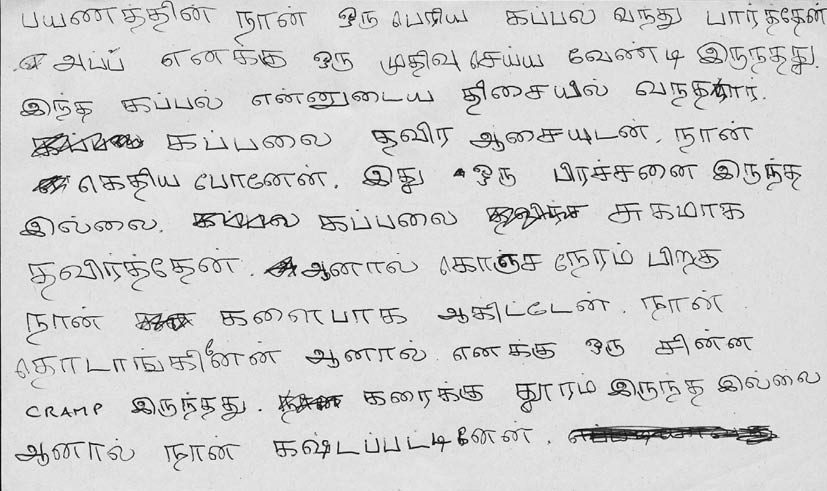 பயணத்தின் நான் ஒரு பெரிய கப்பல் வந்து பார்த்தேன்
அப்ப் எனக்கு ஒரு முதிவு செய்ய வேண்டி இருந்தது.
இந்த கப்பல் என்னுடைய திசையில் வந்தார்.
கப்பலை தவிர ஆசையுடன். நான்
கெதிய போனேன். இது ஒரு பிரச்சனை இருந்த
இல்லை. கப்பலை சுகமாக
தவிர்த்தேன். ஆனால் கொஞ்ச நேரம் பிறகு
நான் களைபாக ஆகிட்டேன். நான்
தொடாங்கினேன் ஆனால் எனக்கு ஒரு சின்ன
CRAMP இருந்தது. கரைக்கு தூரம் இருந்த இல்லை
ஆனால் நான் கஷ்டப்பட்டினேன்.